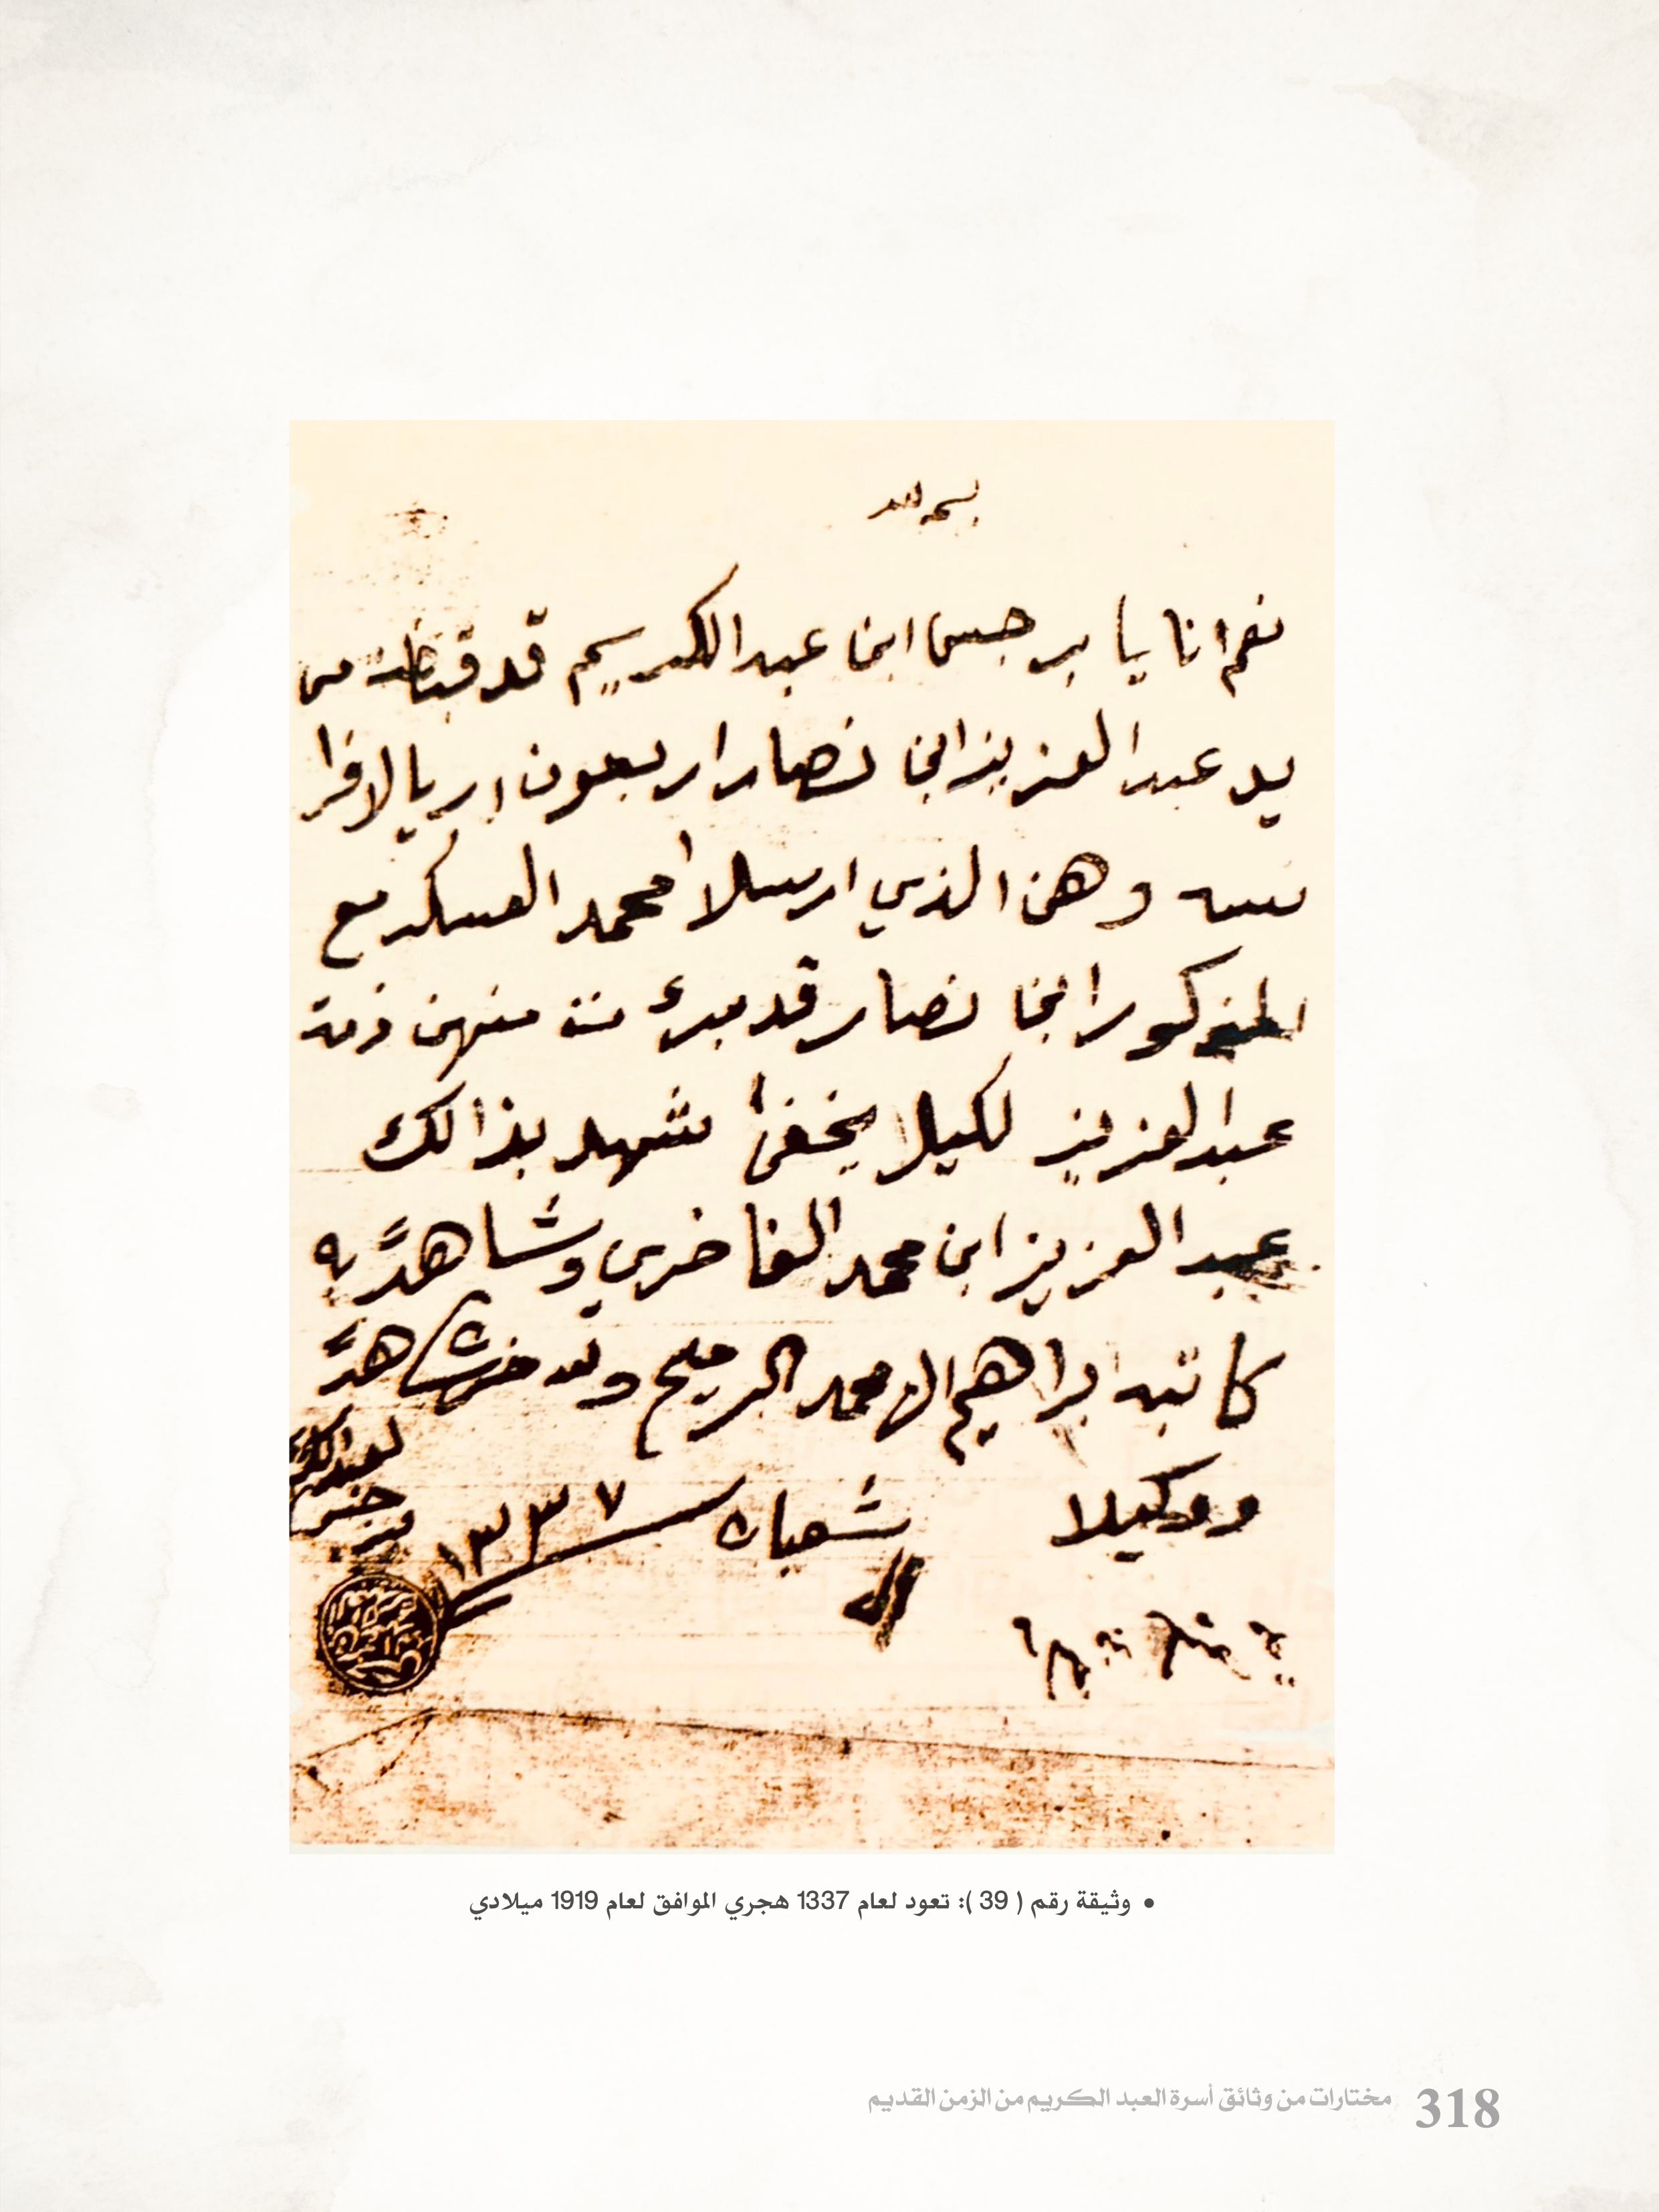 نعم انا يا برجس ابن عبدالكريم قد قبضت من
يد عبدالعزيز ابن نصار اربعون اريالا فرا
نسه وهن الذي ارسلا محمد العسكر مع
المذكور ابن نصار قد برئ منهن ذمة
عبدالعزيز لكيلا يخفى شهد بذالك
عبدالعزيز ابن محمد الفاخري وشاهد به
كاتبه ابراهيم المحمد الرميح شاهد
ووكيلا
شعبان ١٣٣٧
• وثيقة رقم ( 39 ): تعود لعام 1337 هجري الموافق لعام 1919 ميلادي
318 مختارات من وثائق أسرة العبد الكريم من الزمن القديم